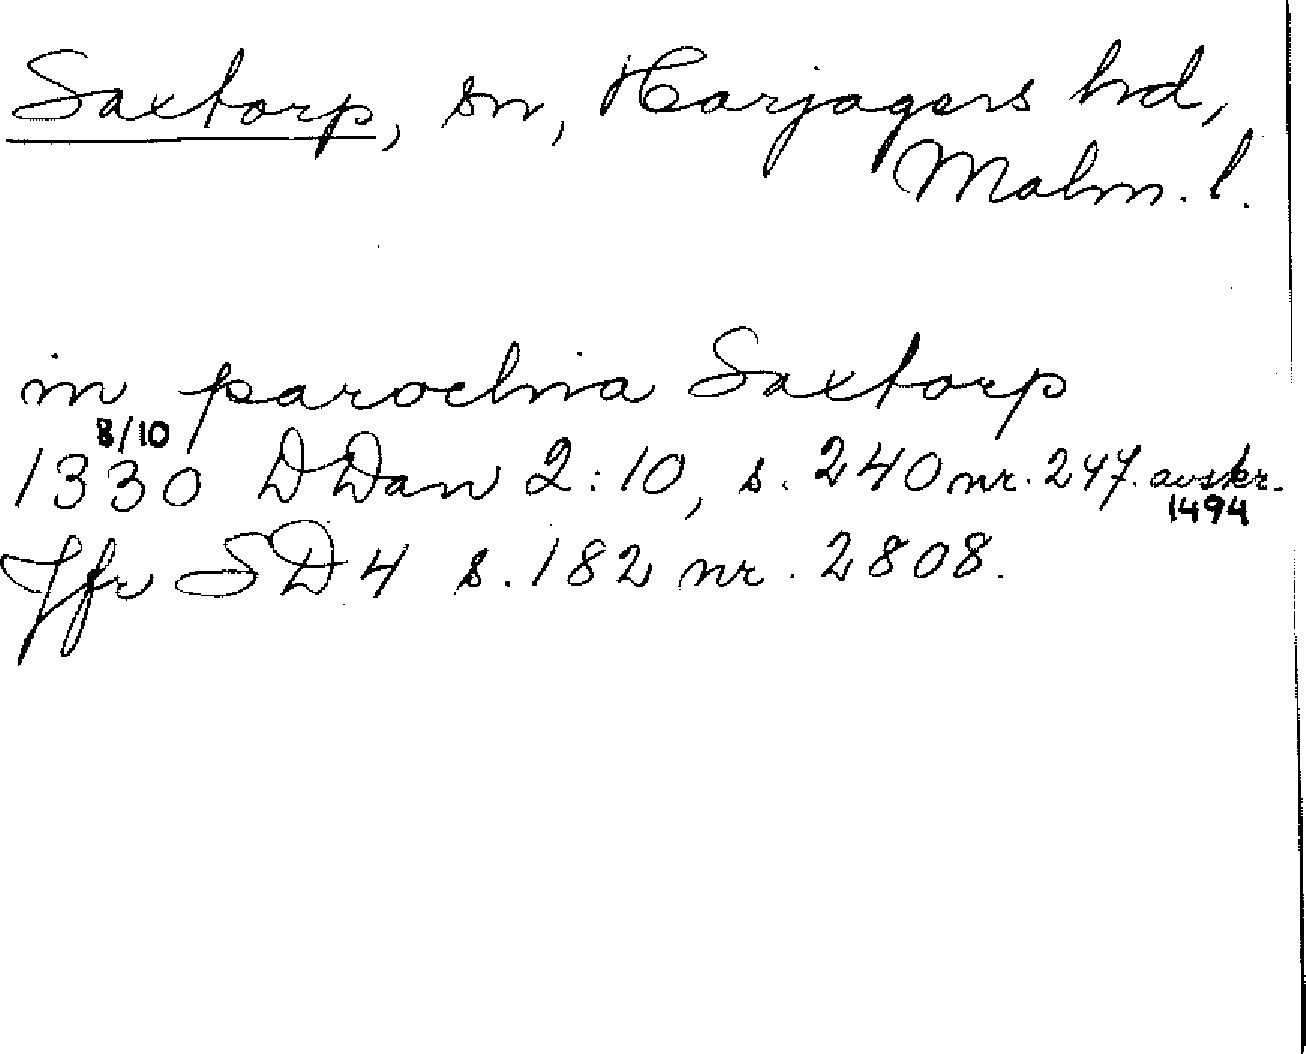 Saxtorp, sn, Harjagers hd,
Malm. l.
in parochia Saxtorp
8/10
1330 DDan 2:10, s. 240 nr. 247. avskr.
1494
Jfr SD 4 s. 182 nr. 2808.